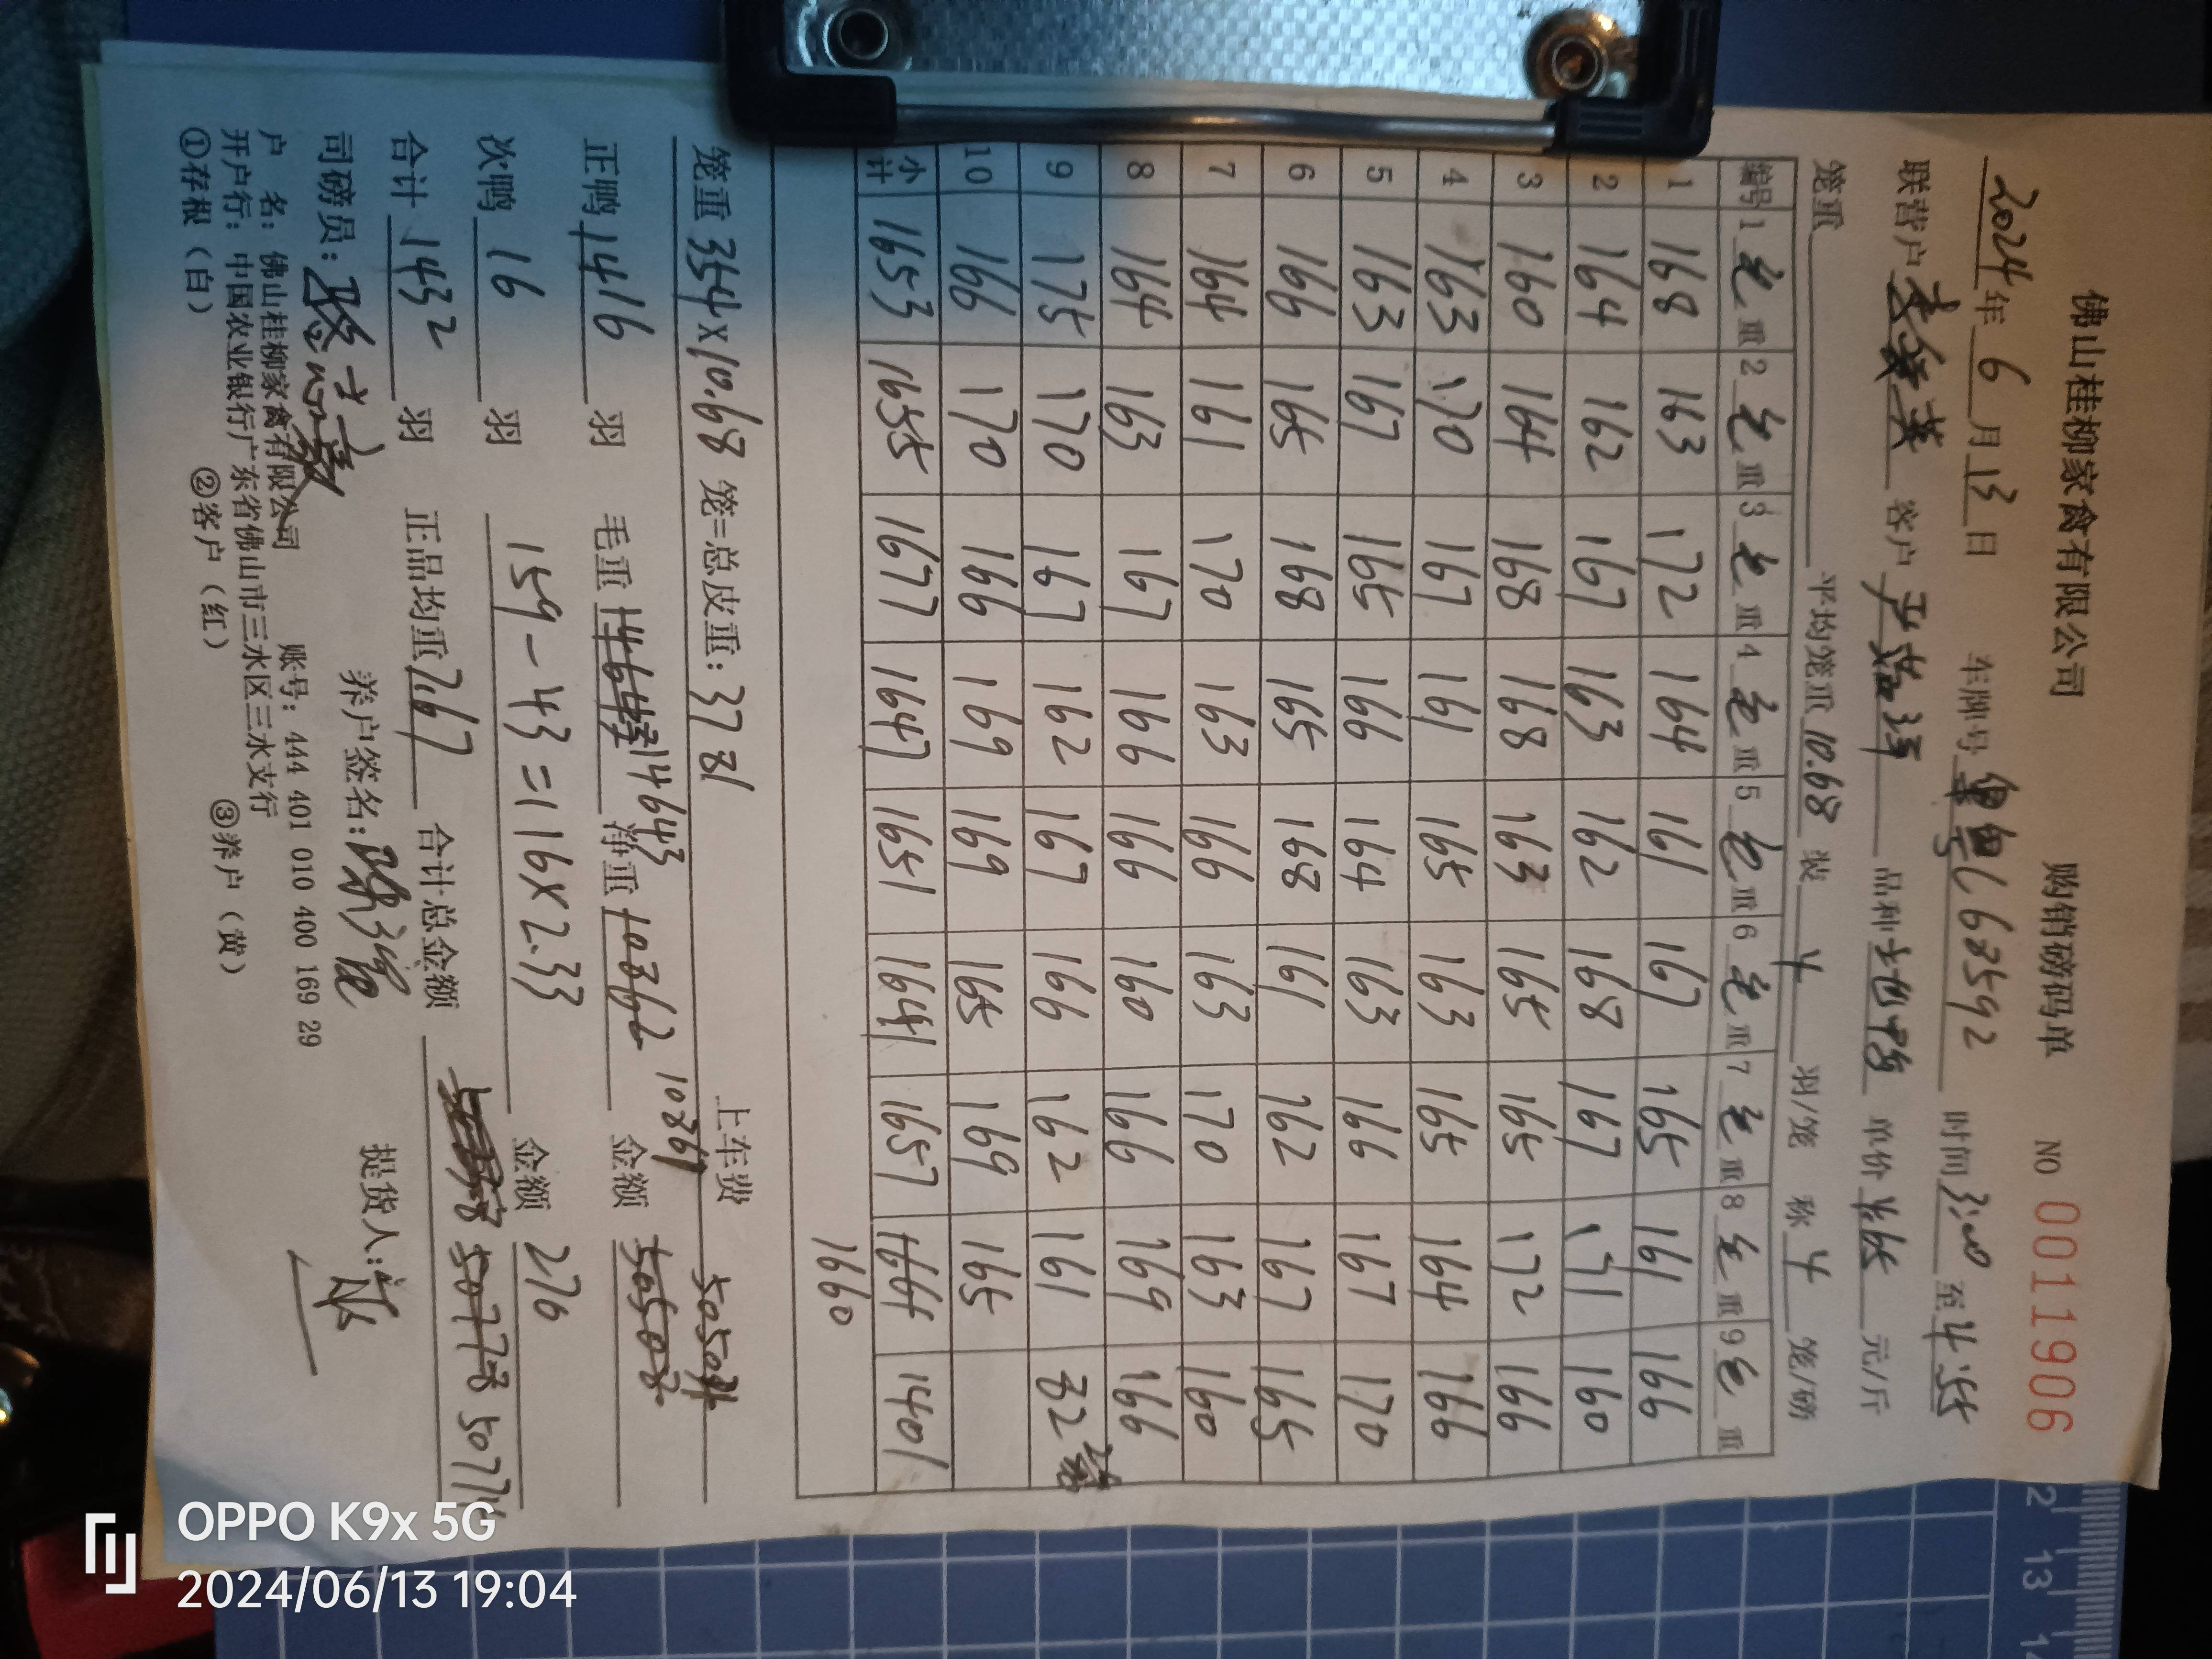 佛山桂柳家禽有限公司 购销磅码单 NO 0011906
2024年6月13日 车牌号 62592 时间3:00至4:55
联营户 客户 品种 单价 元/斤
笼重 平均笼重10.68 装4羽/笼 称4笼/磅
编号 1毛重 2毛重 3毛重 4毛重 5毛重 6毛重 7毛重 8毛重 9毛重
1 168 163 172 164 161 167 165 161 166
2 164 162 167 163 162 168 167 171 160
3 160 164 168 168 163 165 165 172 166
4 163 170 167 161 165 163 165 164 166
5 163 167 165 166 164 163 166 167 170
6 166 165 168 165 168 161 162 167 165
7 164 161 170 163 166 163 170 163 160
8 164 163 167 166 166 160 166 169 166
9 175 170 167 162 167 166 162 161 82 2笼
10 166 170 166 169 169 165 169 165
小计 1653 1655 1677 1647 1651 1641 1657 1664 1401
1660
笼重354×10.68笼=总皮重:3781 上车费
正鸭1416羽 毛重 14643 净重10362 10861 金额
次鸭16羽 159-43=116×2.33 金额270
合计1432羽 正品均重7.67 合计总金额 50778 50774
司磅员: 养户签名: 提货人:
户 名:佛山桂柳家禽有限公司 账号:444 401 010 400 169 29
开户行:中国农业银行广东省佛山市三水区三水支行
①存根(白) ②客户(红) ③养户(黄)
OPPO K9x 5G
2024/06/13 19:04